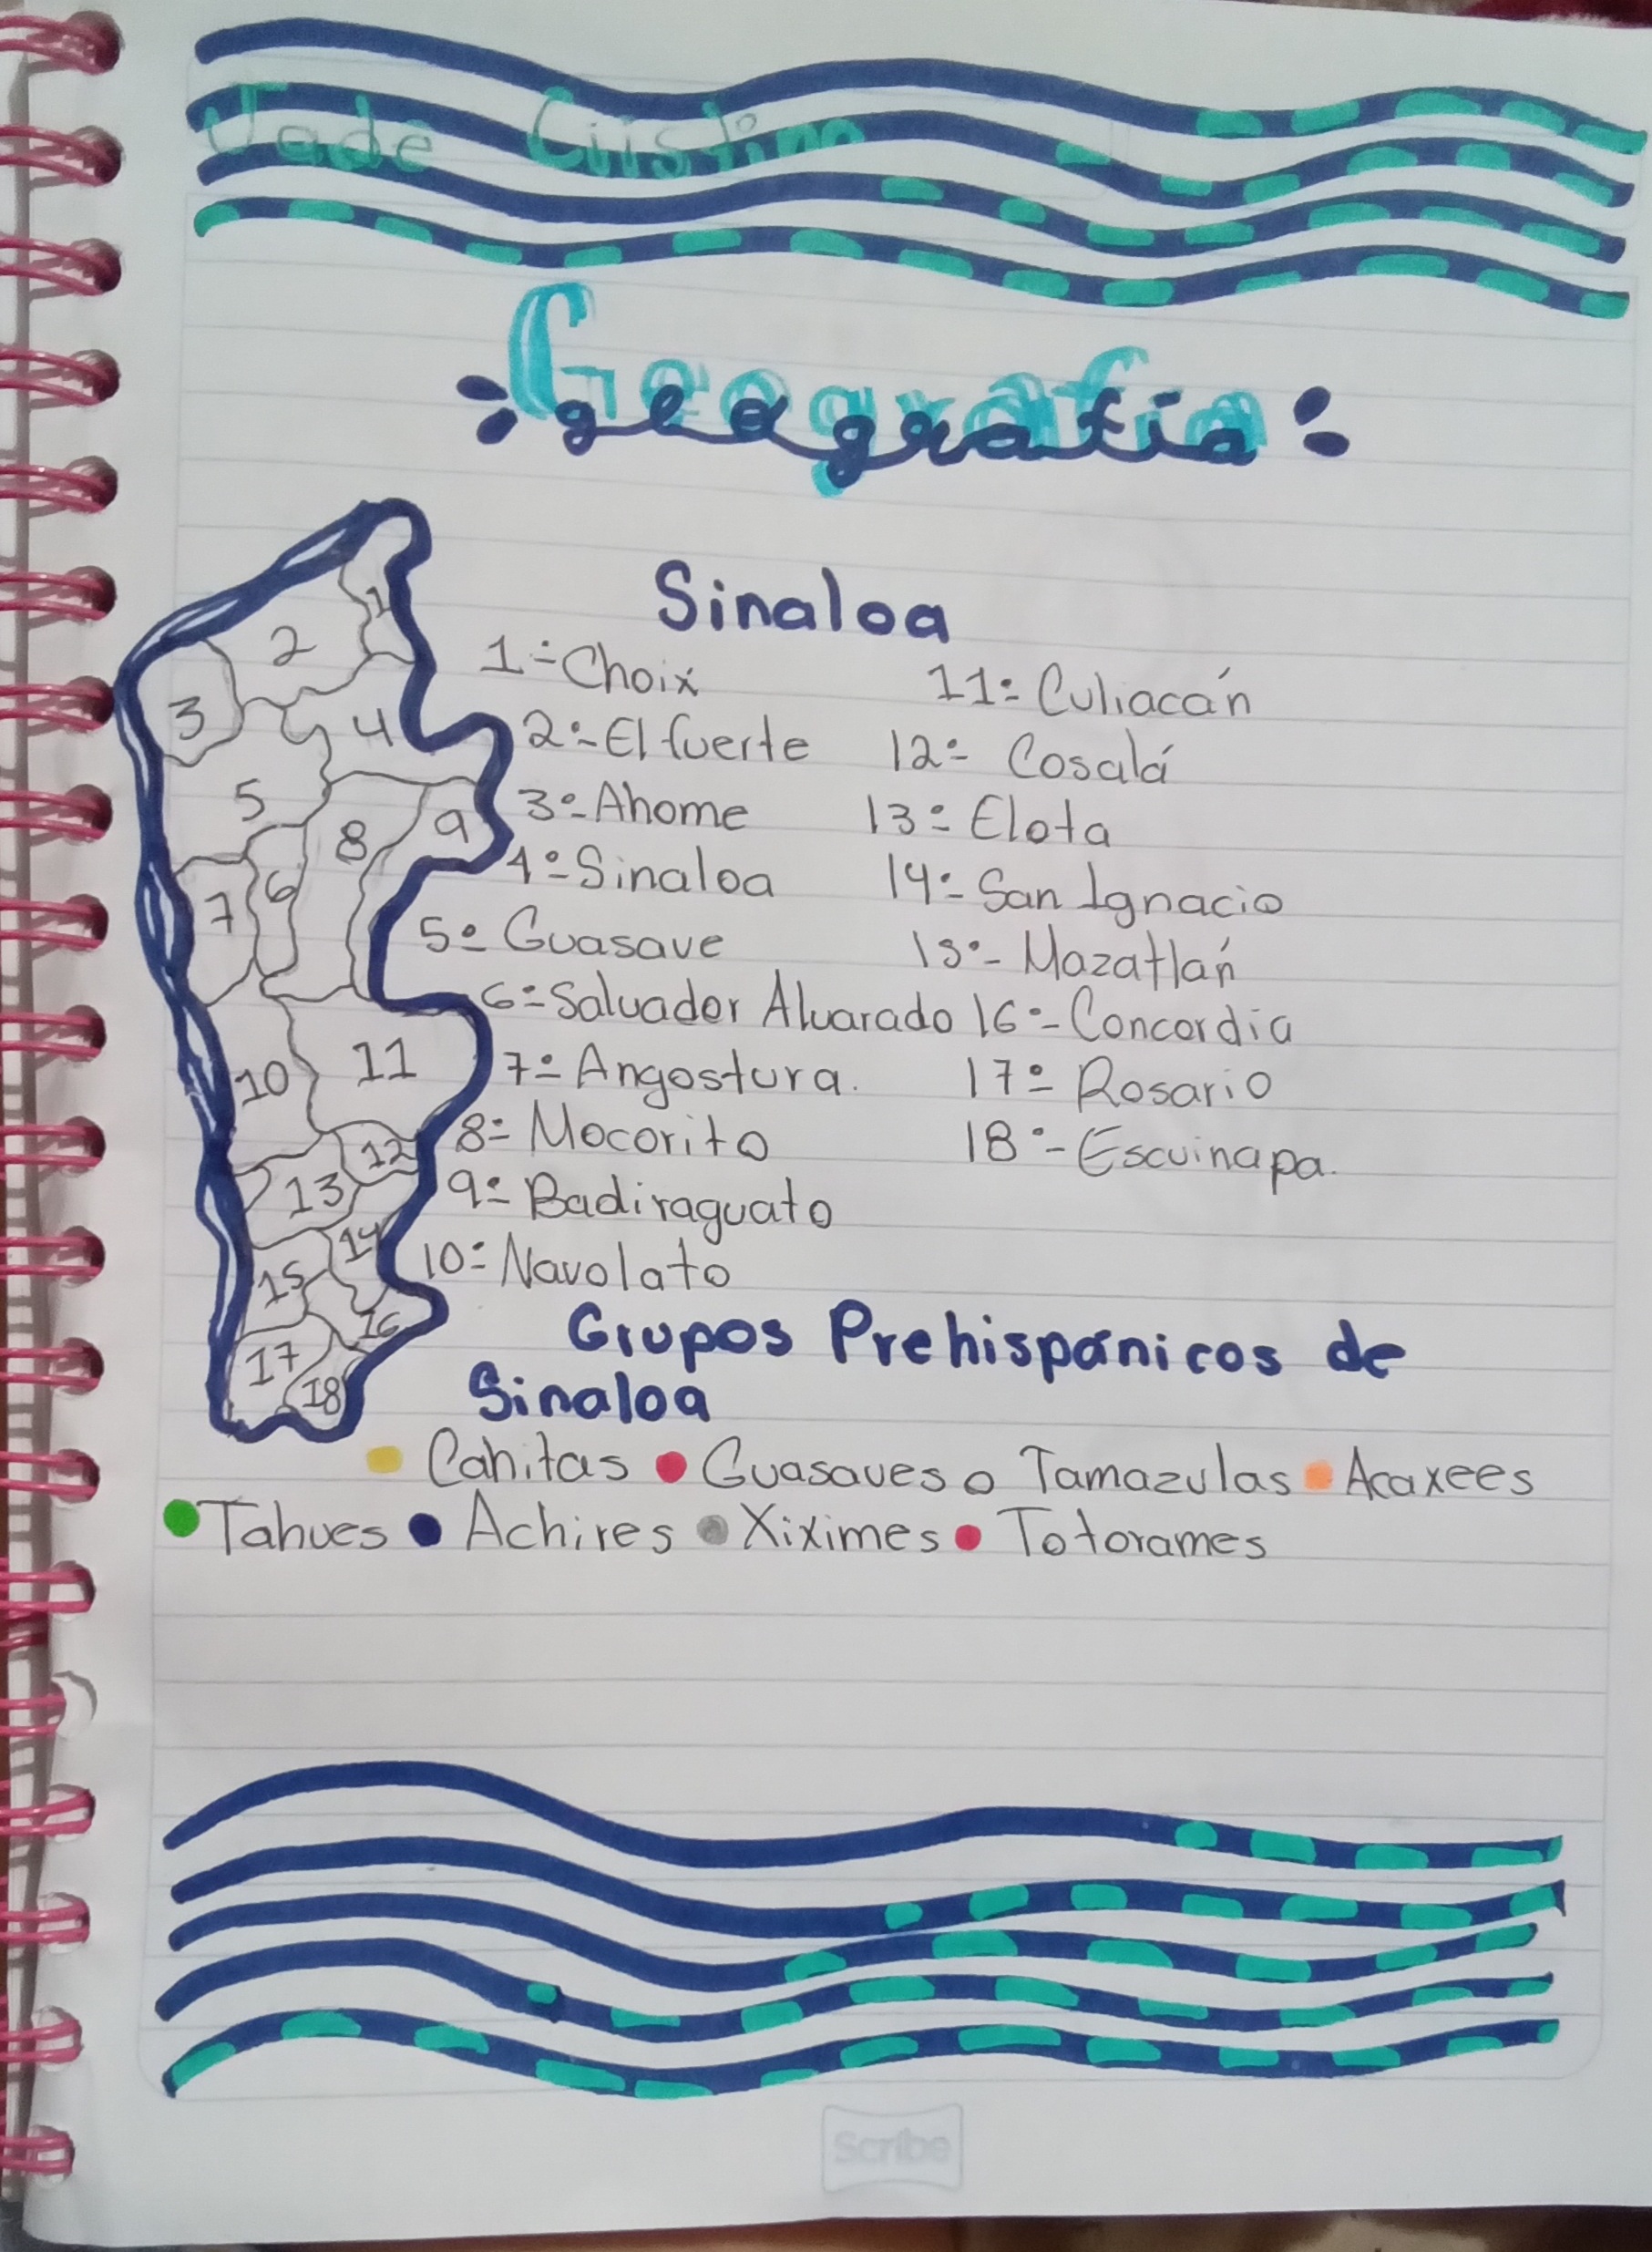 Jade Cristina
Geografia
geografia
Sinaloa
1:- Choix
2:- El fuerte
3:- Ahome
4:- Sinaloa
5:- Guasave
6:- Salvador Alvarado
7:- Angostura.
8:- Mocorito
9:- Badiraguato
10:- Navolato
11:- Culiacán
12:- Cosalá
13:- Elota
14:- San Ignacio
15:- Mazatlán
16:- Concordia
17:- Rosario
18:- Escuinapa.
1
2
3
4
5
9
8
6
7
10
11
12
13
14
15
16
17
18
Grupos Prehispánicos de
Sinaloa
Cahitas Guasaves Tamazulas Acaxees
Tahues Achires Xiximes Totorames
Scribe